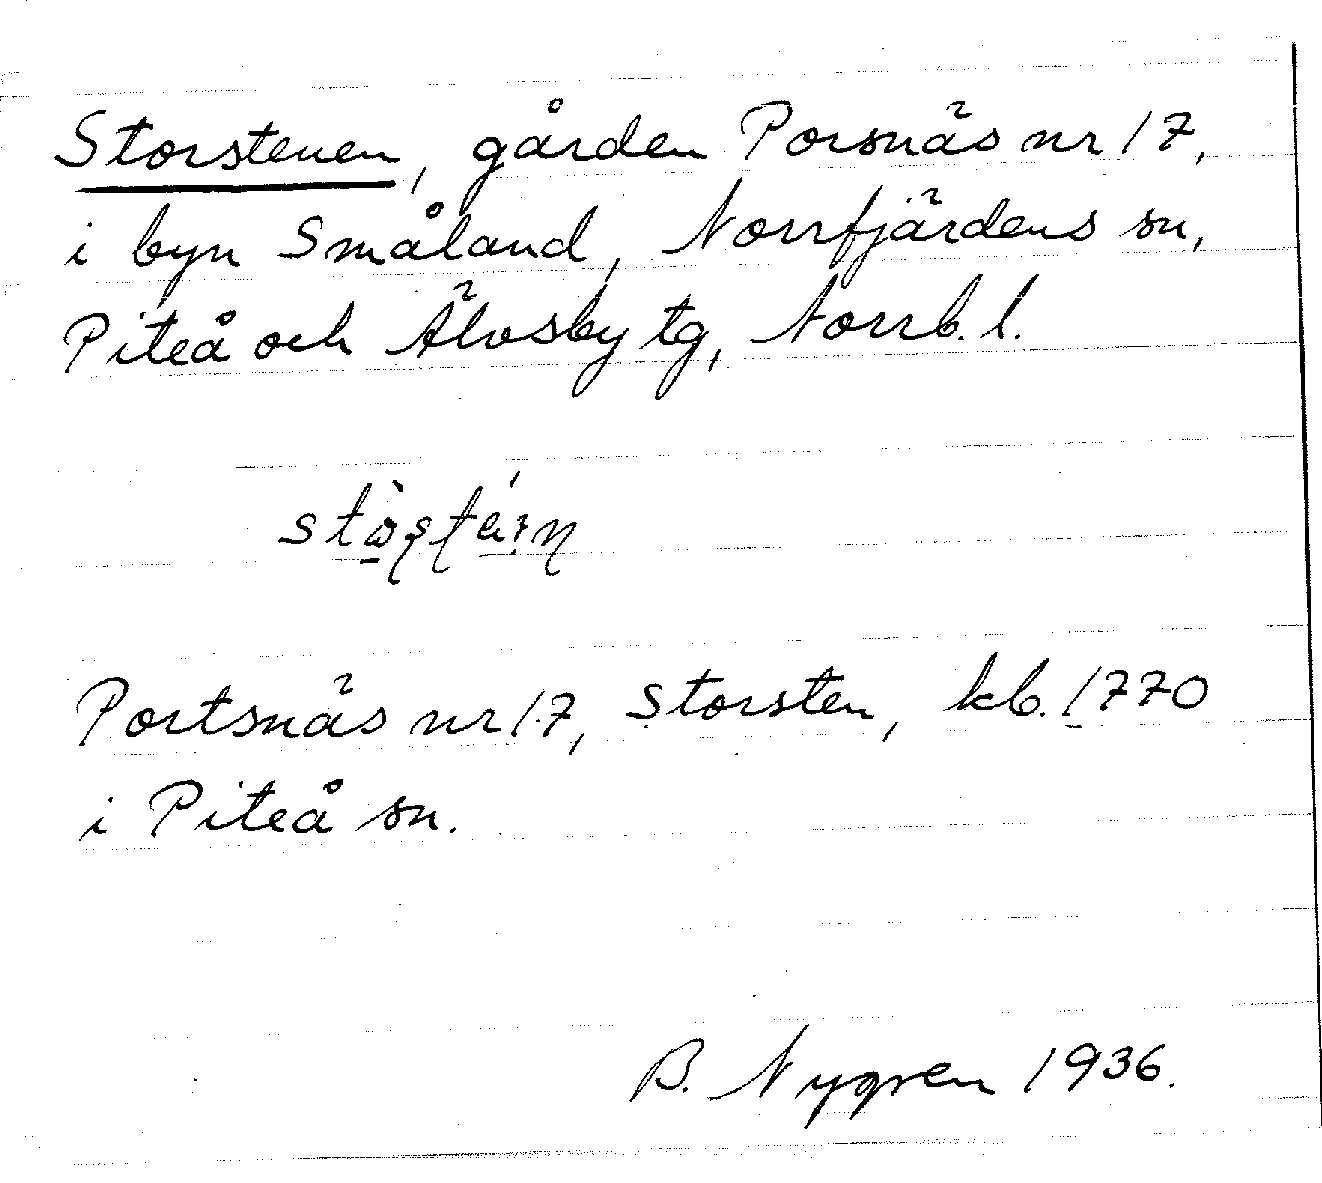 Storstenen, gården Porsnäs nr 17,
i byn Småland, Norrfjärdens sn,
Piteå och Älvsby tg, Norrb. l.
Portsnäs nr 17, Storsten, kb. 1770
i Piteå sn.
B. Nygren 1936.